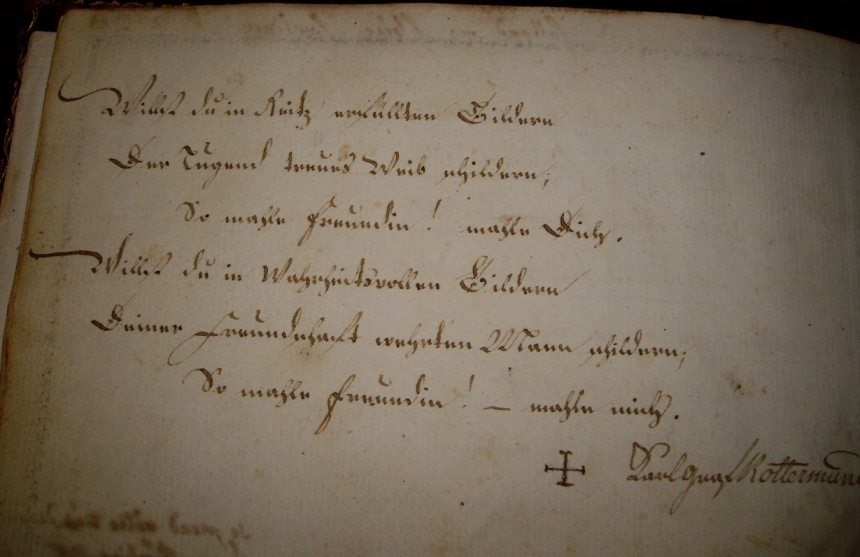 Willst du in Reitz erfüllten Bildern
Der Tugend treues Weib schildern,
So mahle Freundin! mahle Dich.
Willst du in Wahrheitsvollen Bildern
Deiner Freundschaft wehrten Mann schildern,
So mahle Freundin! — mahle mich.
Karl Graf Rottermund